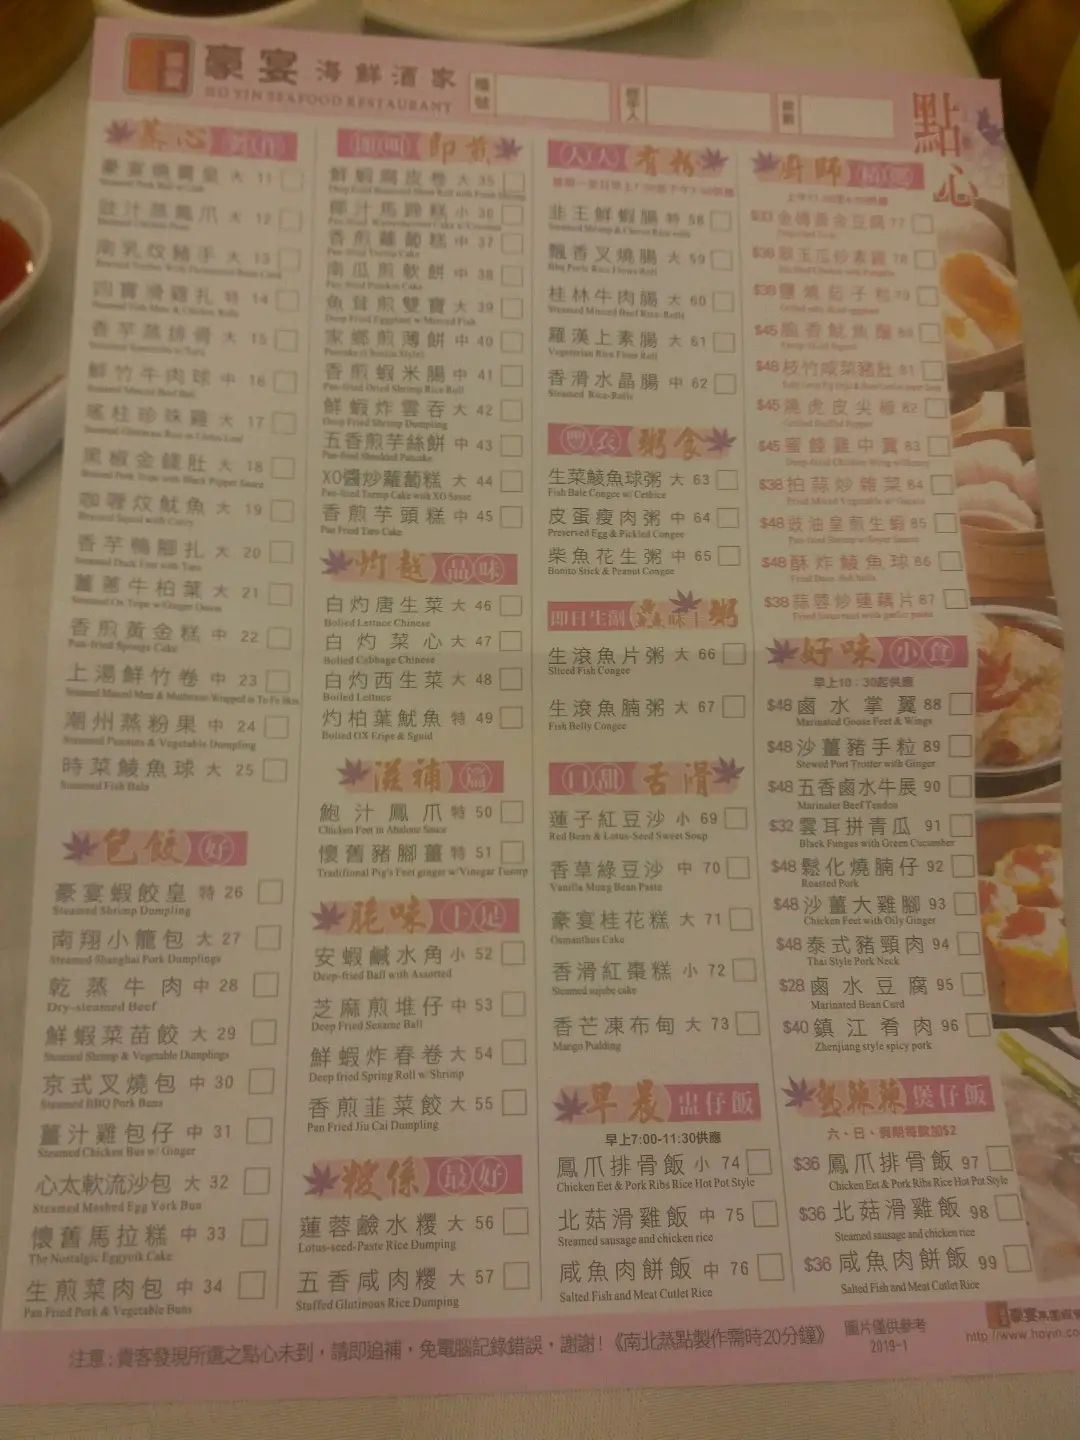 豪宴海鮮酒家
HO YIN SEAFOOD RESTAURANT
點心
蒸心
大 11
豉汁蒸鳳爪 大 12
南乳炆豬手 大 13
四寶滑雞扎 特 14
香芋蒸排骨 大 15
鮮竹牛肉球 中 16
瑤柱珍珠雞 大 17
黑椒金錢肚 大 18
咖喱炆魷魚 大 19
Braised Squid with Curry
香芋鴨腳扎 大 20
Steamed Duck Feet with Taro
薑蔥牛柏葉 大 21
Steamed Ox Tripe w/Ginger Onion
香煎黃金糕 中 22
Pan-fried Sponge Cake
上湯鮮竹卷 中 23
潮州蒸粉果 中 24
Steamed Peanuts & Vegetable Dumpling
時菜鯪魚球 大 25
Steamed Fish Bals
包餃 好
豪宴蝦餃皇 特 26
Steamed Shrimp Dumpling
南翔小籠包 大 27
Steamed Shanghai Pork Dumplings
乾蒸牛肉 中 28
Dry-steamed Beef
鮮蝦菜苗餃 大 29
Steamed Shrimp & Vegetable Dumplings
京式叉燒包 中 30
Steamed BBQ Pork Buns
薑汁雞包仔 中 31
Steamed Chicken Bus w/ Ginger
心太軟流沙包 大 32
Steamed Meshed Egg York Bun
懷舊馬拉糕 中 33
The Nostalgic Eggyolk Cake
生煎菜肉包 中 34
Pan Fried Pork & Vegetable Buns
即煎
鮮蝦腐皮卷 大 35
椰汁馬蹄糕 小 36
香煎蘿蔔糕 中 37
Pan-fried Turnip Cake
南瓜煎軟餅 中 38
Pan-fried Pumpkin Cake
魚茸煎雙寶 大 39
Deep Fried Eggplant w/Minced Fish
家鄉煎薄餅 中 40
香煎蝦米腸 中 41
Pan-fried Dried Shrimp Rice Roll
鮮蝦炸雲吞 大 42
Deep Fried Shrimp Dumpling
五香煎芋絲餅 中 43
Pan-fried Shredded Pancake
XO醬炒蘿蔔糕 大 44
Pan-fried Turnip Cake with XO Sause
香煎芋頭糕 中 45
Pan Fried Taro Cake
灼越 品味
白灼唐生菜 大 46
Bolied Lettuce Chinese
白灼菜心 大 47
Bolied Cabbage Chinese
白灼西生菜 大 48
Boiled Lettuce
灼柏葉魷魚 特 49
Bolied OX Eripe & Sguid
滋補
鮑汁鳳爪 特 50
Chicken Feet in Abalone Sauce
懷舊豬腳薑 特 51
Traditional Pig's Feet ginger w/Vinegar Tuorng
脆味 十足
安蝦鹹水角 小 52
Deep-fried Ball with Assorted
芝麻煎堆仔 中 53
Deep Fried Sesame Ball
鮮蝦炸春卷 大 54
Deep fried Spring Roll w/ Shrimp
香煎韮菜餃 大 55
Pan Fried Jiu Cai Dumpling
糭係 最好
蓮蓉鹼水糭 大 56
Lotus-seed-Paste Rice Dumping
五香咸肉糭 大 57
Stuffed Glutinous Rice Dumping
人人 有粉
韭王鮮蝦腸 特 58
飄香叉燒腸 大 59
Bbq Poric Rice Flous Roll
桂林牛肉腸 大 60
Steamed Minced Beef Rice-Rolls
羅漢上素腸 大 61
Vegetarian Rice Flous Roll
香滑水晶腸 中 62
Steamed Rice-Rolls
豐衣 粥食
生菜鯪魚球粥 大 63
Fish Bale Congee w/ Cethice
皮蛋瘦肉粥 中 64
Preserved Egg & Pickled Congee
柴魚花生粥 中 65
Bonito Stick & Peanut Congee
即日生劏 真味粥
生滾魚片粥 大 66
Sliced Fish Congee
生滾魚腩粥 大 67
Fish Belly Congee
口甜 舌滑
蓮子紅豆沙 小 69
Red Bean & Lotus-Seed Sweet Soup
香草綠豆沙 中 70
Vanilla Mung Bean Paste
豪宴桂花糕 大 71
Osmanthus Cake
香滑紅棗糕 小 72
Steamed sujube cake
香芒凍布甸 大 73
Mango Pudding
早晨 盅仔飯
早上7:00-11:30供應
鳳爪排骨飯 小 74
Chicken Eet & Pork Ribs Rice Hot Pot Style
北菇滑雞飯 中 75
Steamed sausage and chicken rice
咸魚肉餅飯 中 76
Salted Fish and Meat Cutlet Rice
廚師 精選
金磚黃金豆腐 77
78
$38 鹽燒茄子粒 79
$45 脆香魷魚鬚 80
$48 枝竹咸菜豬肚 81
$45 燒虎皮尖椒 82
$45 蜜餞雞中翼 83
$38 拍蒜炒雜菜 84
$48 豉油皇煎生蝦 85
$48 酥炸鯪魚球 86
$38 蒜蓉炒蓮藕片 87
好味 小食
早上10：30起供應
$48 鹵水掌翼 88
Marinated Goose Feet & Wings
$48 沙薑豬手粒 89
Stewed Port Trotter with Ginger
$48 五香鹵水牛展 90
Marinater Beef Tendon
$32 雲耳拼青瓜 91
Black Fungus with Green Cucumber
$48 鬆化燒腩仔 92
Roasted Pork
$48 沙薑大雞腳 93
Chicken Feet with Oily Ginger
$48 泰式豬頸肉 94
Thai Style Pork Neck
$28 鹵水豆腐 95
Marinated Bean Curd
$40 鎮江肴肉 96
Zhenjiang style spicy pork
熱辣辣 煲仔飯
六、日、假期每款加$2
$36 鳳爪排骨飯 97
Chicken Eet & Pork Ribs Rice Hot Pot Style
$36 北菇滑雞飯 98
Steamed sausage and chicken rice
$36 咸魚肉餅飯 99
Salted Fish and Meat Cutlet Rice
注意：貴客發現所選之點心未到，請即追補，免電腦記錄錯誤，謝謝！《南北蒸點製作需時20分鐘》
圖片僅供參考
2019-1
豪宴集團
http://www.hoyin.co